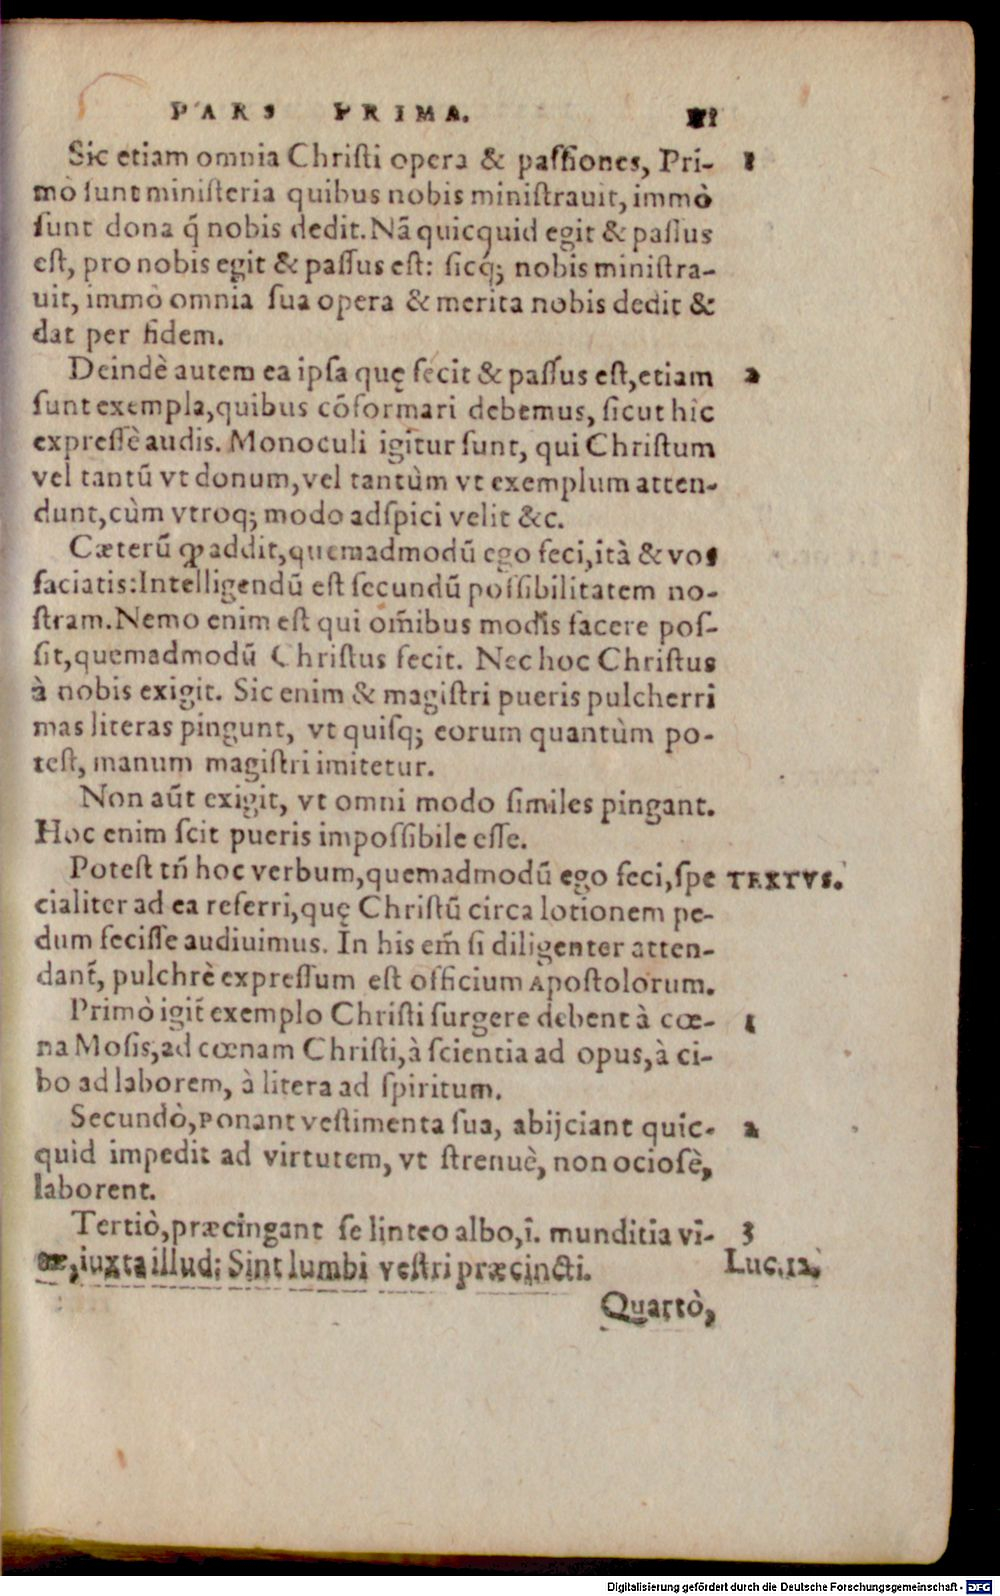 PARS PRIMA.
Sic etiam omnia Christi opera & passiones, Pri- 1
mò sunt ministeria quibus nobis ministrauit, immò
sunt dona q̃ nobis dedit. Nã quicquid egit & passus
est, pro nobis egit & passus est: sicq; nobis ministra-
uit, immò omnia sua opera & merita nobis dedit &
dat per fidem.
Deindè autem ea ipsa quę fecit & passus est, etiam 2
sunt exempla, quibus cõformari debemus, sicut hic
expressè audis. Monoculi igitur sunt, qui Christum
vel tantũ vt donum, vel tantùm vt exemplum atten-
dunt, cùm vtroq; modo adspici velit &c.
Cæterũ ꝙ addit, quemadmodũ ego feci, ità & vos
faciatis: Intelligendũ est secundũ possibilitatem no-
stram. Nemo enim est qui om̃ibus modis facere pos-
sit, quemadmodũ Christus fecit. Nec hoc Christus
à nobis exigit. Sic enim & magistri pueris pulcherri
mas literas pingunt, vt quisq; eorum quantùm po-
test, manum magistri imitetur.
Non aũt exigit, vt omni modo similes pingant.
Hoc enim scit pueris impossibile esse.
Potest tñ hoc verbum, quemadmodũ ego feci, spe TEXTVS.
cialiter ad ea referri, quę Christũ circa lotionem pe-
dum fecisse audiuimus. In his em̃ si diligenter atten-
dant̃, pulchrè expressum est officium Apostolorum.
Primò igit̃ exemplo Christi surgere debent à cœ- 1
na Mosis, ad cœnam Christi, à scientia ad opus, à ci-
bo ad laborem, à litera ad spiritum.
Secundò, ponant vestimenta sua, abijciant quic- 2
quid impedit ad virtutem, vt strenuè, non ociosè,
laborent.
Tertiò, præcingant se linteo albo, i. munditia vi- 3
tæ, iuxta illud: Sint lumbi vestri præcincti. Luc. 12.
Quartò,
Digitalisierung gefördert durch die Deutsche Forschungsgemeinschaft - DFG